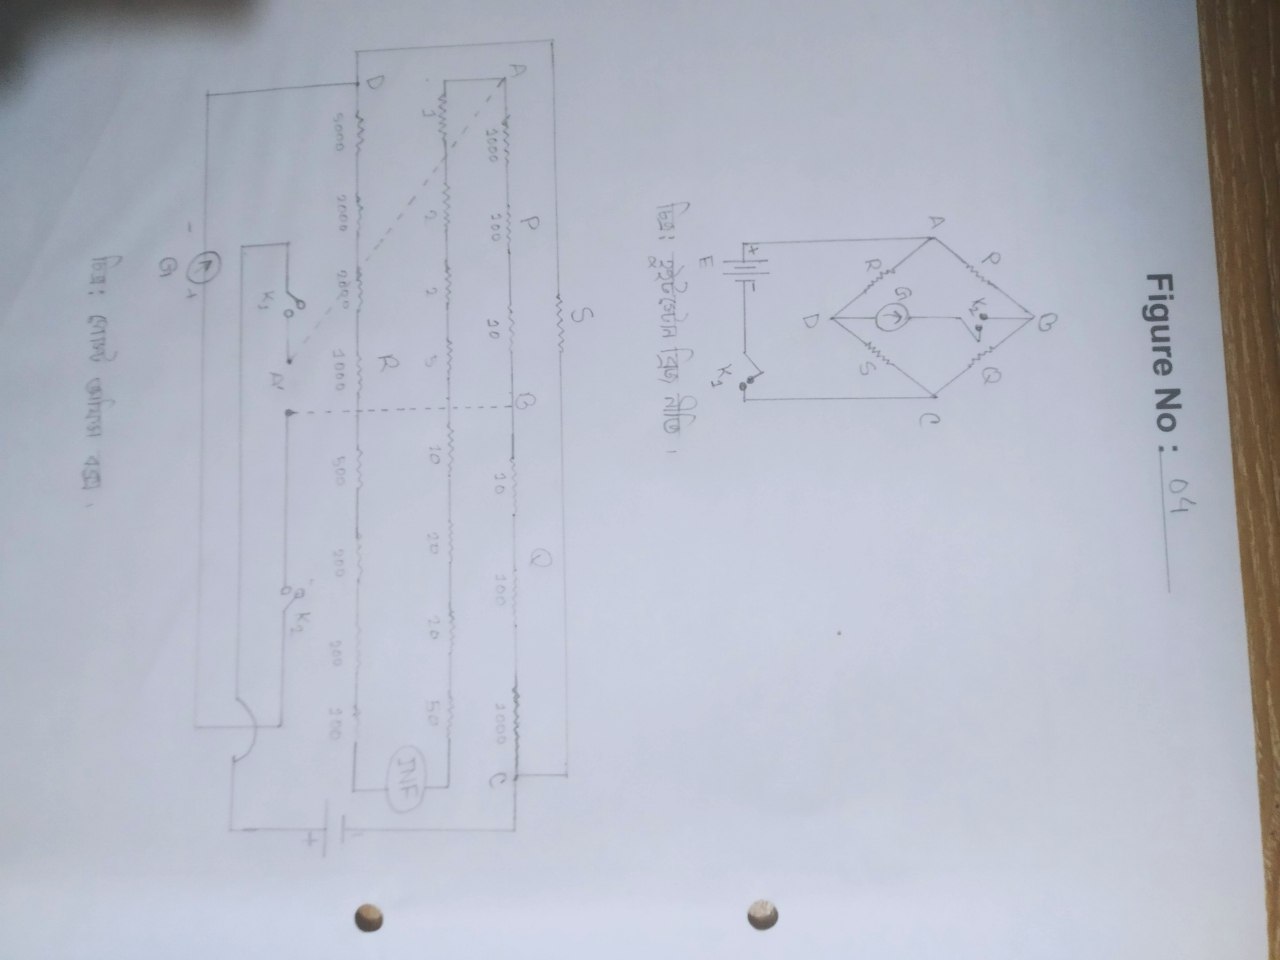 Figure No : 04
A P B
R G K₂ Q
D S C
E + - K₁
চিত্র: হুইটস্টোন ব্রিজ নীতি।
S
A P B Q C
1000 100 10 10 100 1000
1 2 2 5 10 20 20 50
INF
R
D
5000 2000 2000 1000 500 200 200 100
K₁ N K₂
- G + + -
চিত্র: পোস্ট অফিস বক্স।